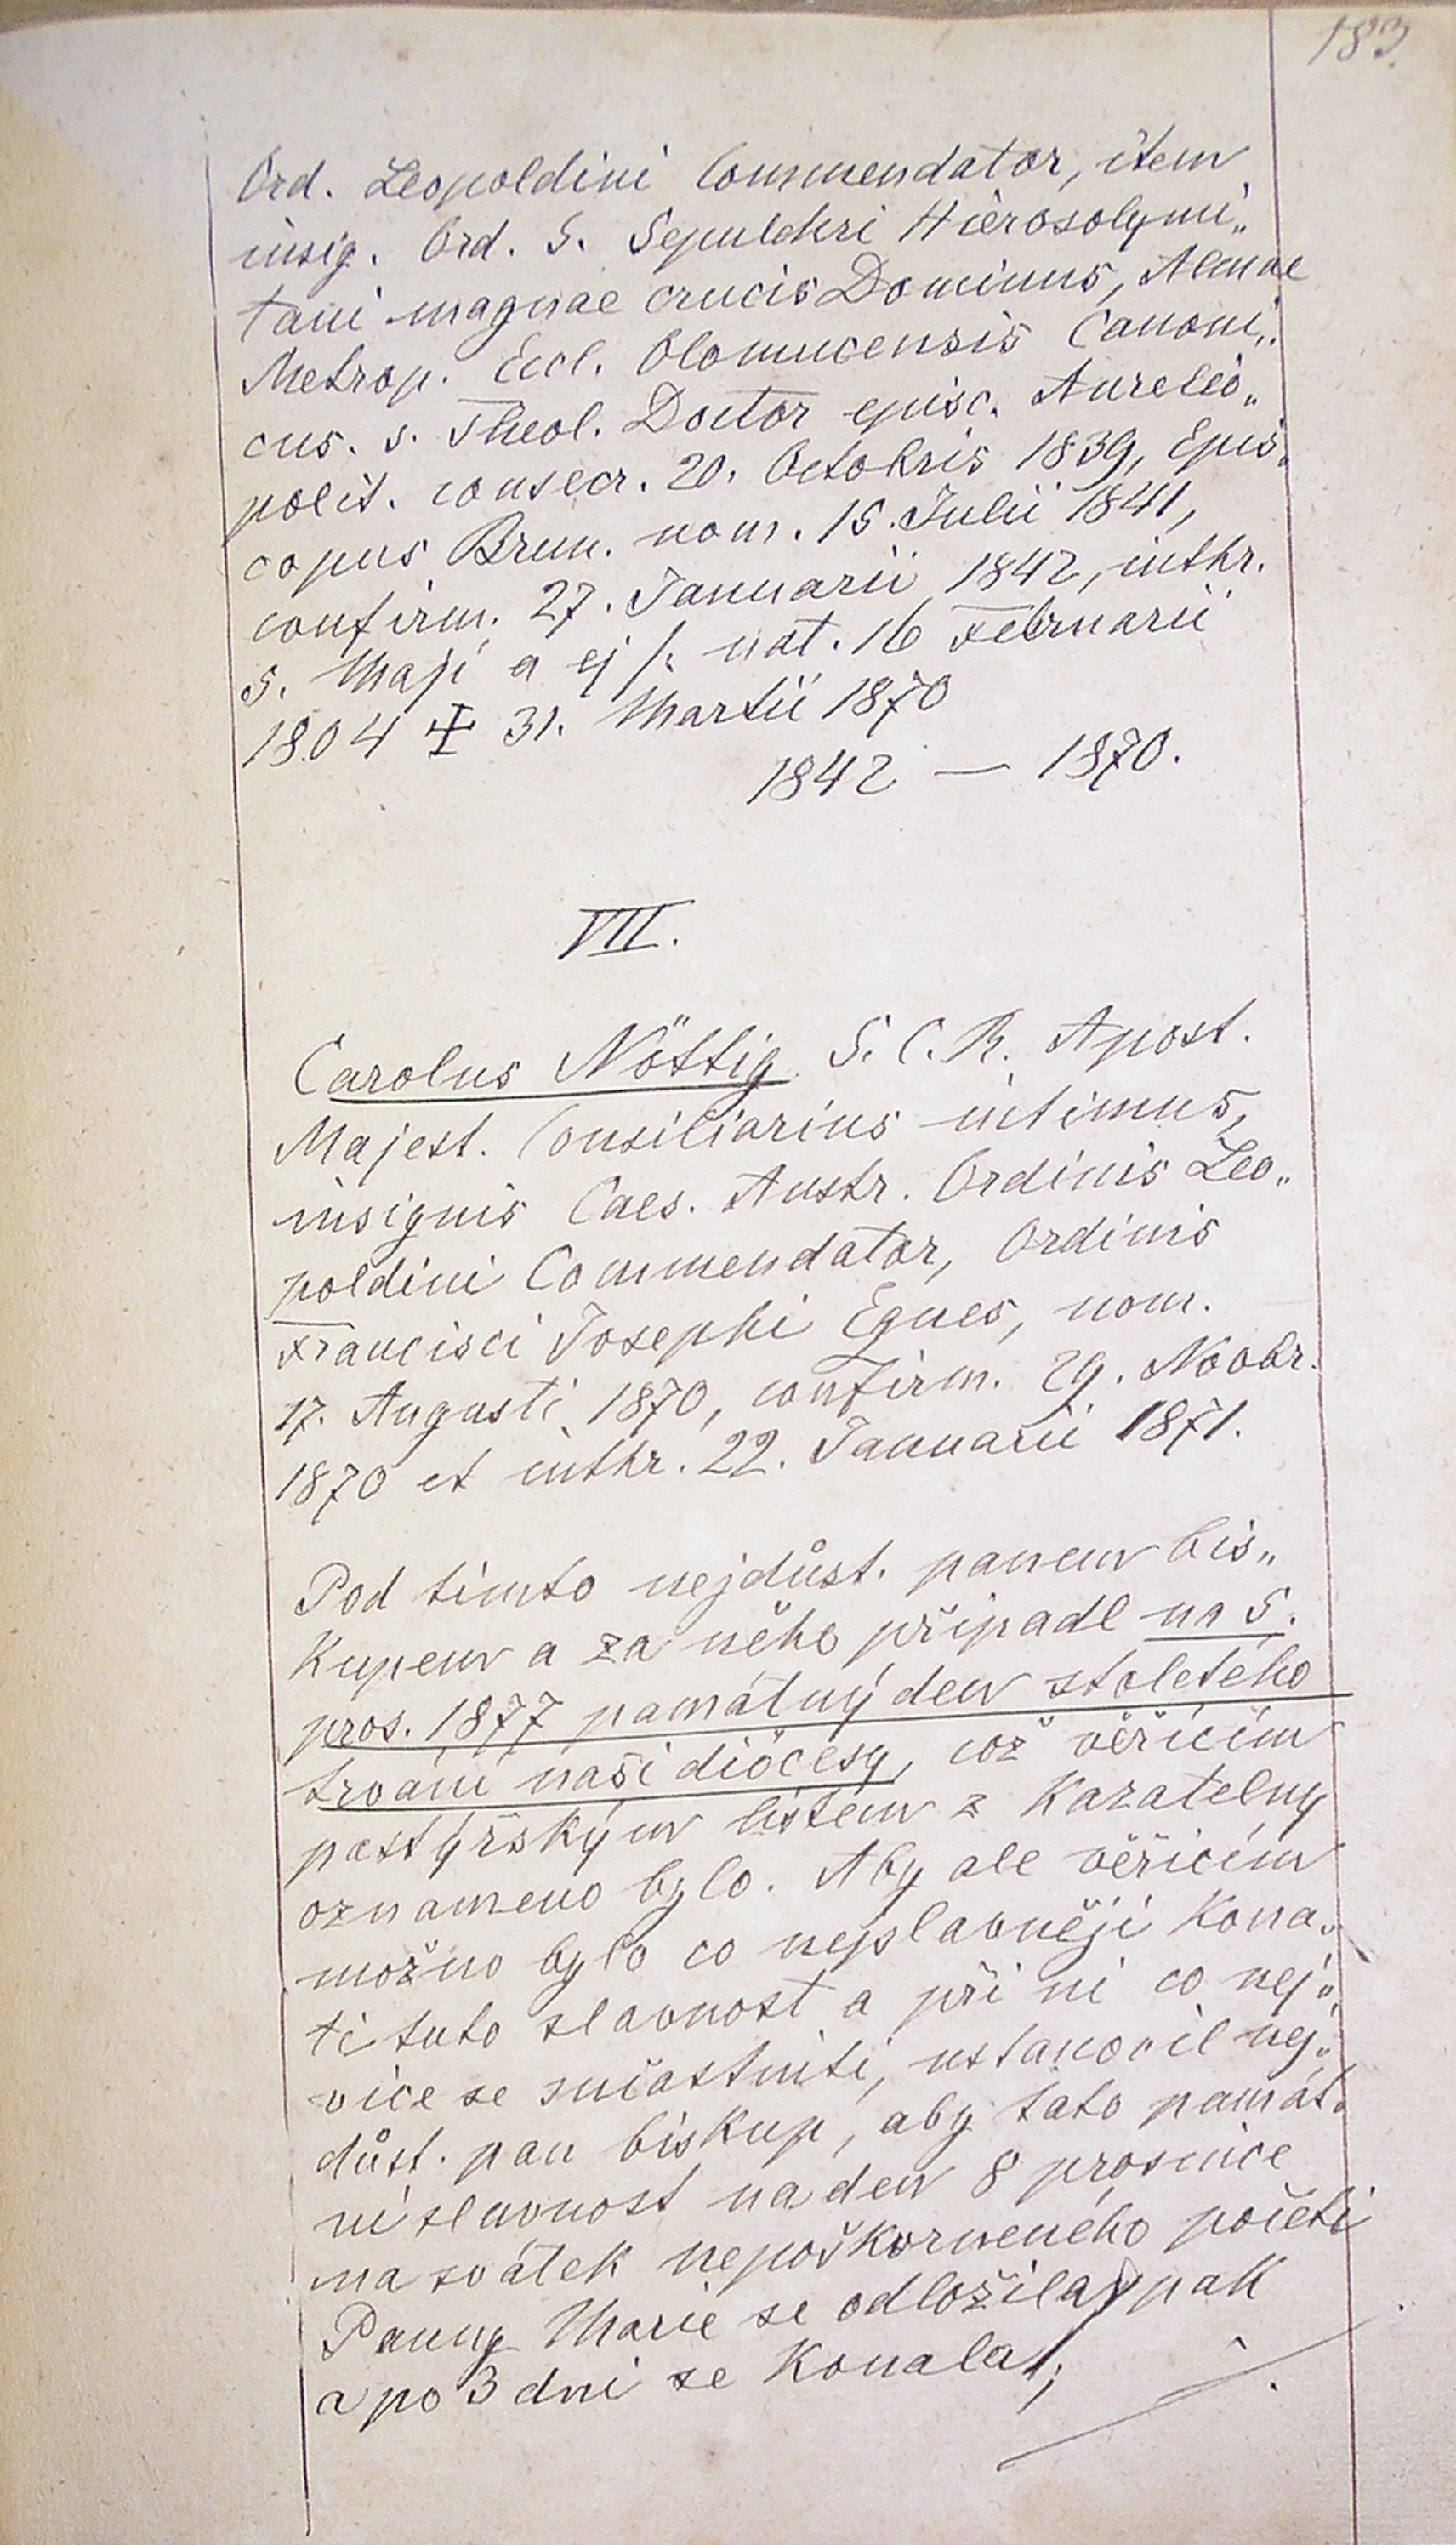 183.
Ord. Leopoldini Commendator, item
insig. Ord. S. Sepulchri Hierosolymi„
tani magnae crucis Dominus, Almae
Metrop. Eccl. Olomucensis Canoni„
cus. s. Theol. Doctor episc. Aurelio„
polit. consecr. 20. Octobris 1839, Epis„
copus Brun. nom. 15. Julii 1841,
confirm. 27. Januarii 1842, inthr.
5. Maji a ej /. nat. 16 Februarii
1804 ☩ 31. Martii 1870
1842 — 1870.
VII.
Carolus Nöttig S. C. R. Apost.
Majest. Consiliarius intimus,
insignis Caes. Austr. Ordinis Leo„
poldini Commendator, Ordinis
Francisci Josephi Eques, nom.
17. Augusti 1870, confirm. 29. Noobr.
1870 et inthr. 22. Januarii 1871.
Pod tímto nejdůst. panem bis„
kupem a za něho připadl na 5.
pros. 1877 památný den stoletého
trvání naší diöcesy, což věřícím
pastýřským listem z kazatelny
oznámeno bylo. Aby ale věřícím
možno bylo co nejslavněji kona„
ti tuto slavnost a při ní co nej„
více se súčastniti, ustanovil nej„
důst. pan biskup, aby tato památ„
ní slavnost na den 8 prosince
na svátek neposkvrneného početí
Panny Marie se odložila, pak
a po 3 dni se konala;